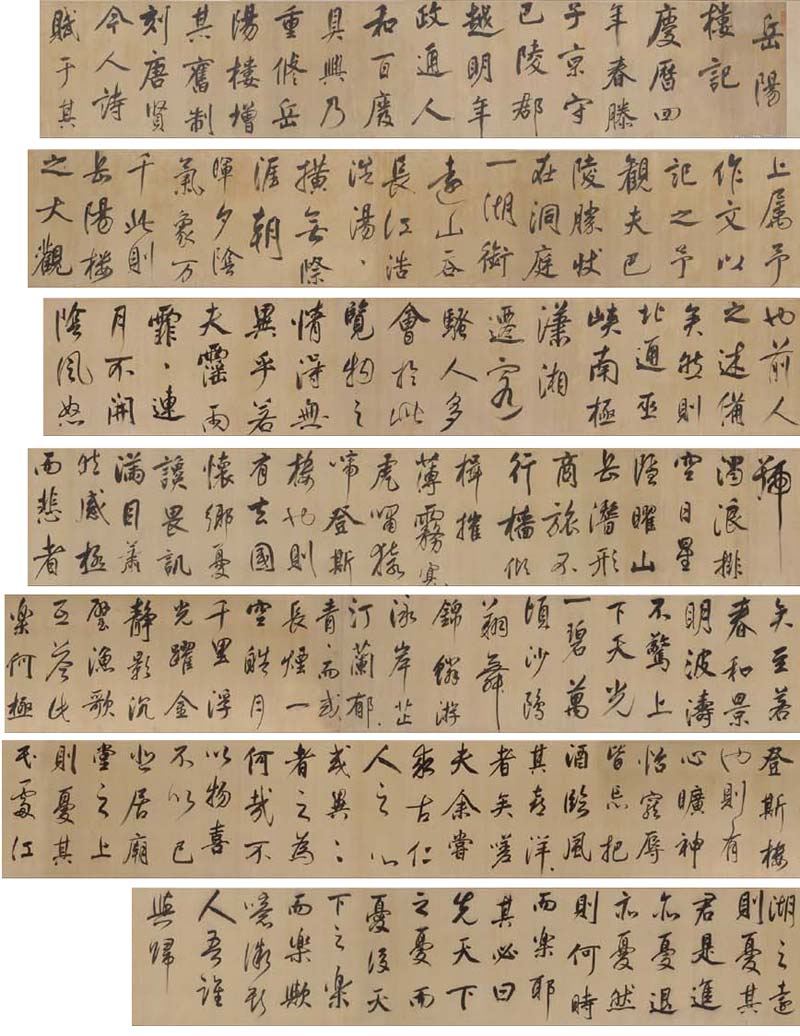 岳陽
樓記
慶曆四
年春滕
子京守
巴陵郡
越明年
政通人
和百廢
具興乃
重修岳
陽樓增
其舊制
刻唐賢
今人詩
賦于其
上属予
作文以
記之予
觀夫巴
陵勝狀
在洞庭
一湖銜
遠山吞
長江浩
浩湯、
橫無際
涯朝
暉夕陰
氣象万
千此則
岳陽樓
之大觀
也前人
之述備
矣然則
北通巫
峽南極
瀟湘
遷客
騷人多
會於此
覽物之
情得無
異乎若
夫霪雨
霏、連
月不開
陰風怒
號
濁浪排
空日星
隱曜山
岳潛形
商旅不
行檣傾
楫摧
薄霧冥
虎嘯猿
啼登斯
樓也則
有去國
懷鄉憂
讒畏譏
滿目蕭
然感極
而悲者
矣至若
春和景
明波濤
不驚上
下天光
一碧萬
頃沙鷗
翔舞
錦鱗游
泳岸芷
汀蘭郁、
青、而或
長煙一
空皓月
千里浮
光躍金
靜影沉
璧漁歌
互答此
樂何極
登斯樓
也則有
心曠神
怡寵辱
皆忘把
酒臨風
其喜洋、
者矣嗟
夫余嘗
求古仁
人之心
或異二
者之為
何哉不
以物喜
不以己
悲居廟
堂之上
則憂其
民處江
湖之遠
則憂其
君是進
亦憂退
亦憂然
則何時
而樂耶
其必曰
先天下
之憂而
憂後天
下之樂
而樂歟
噫微斯
人吾誰
與歸